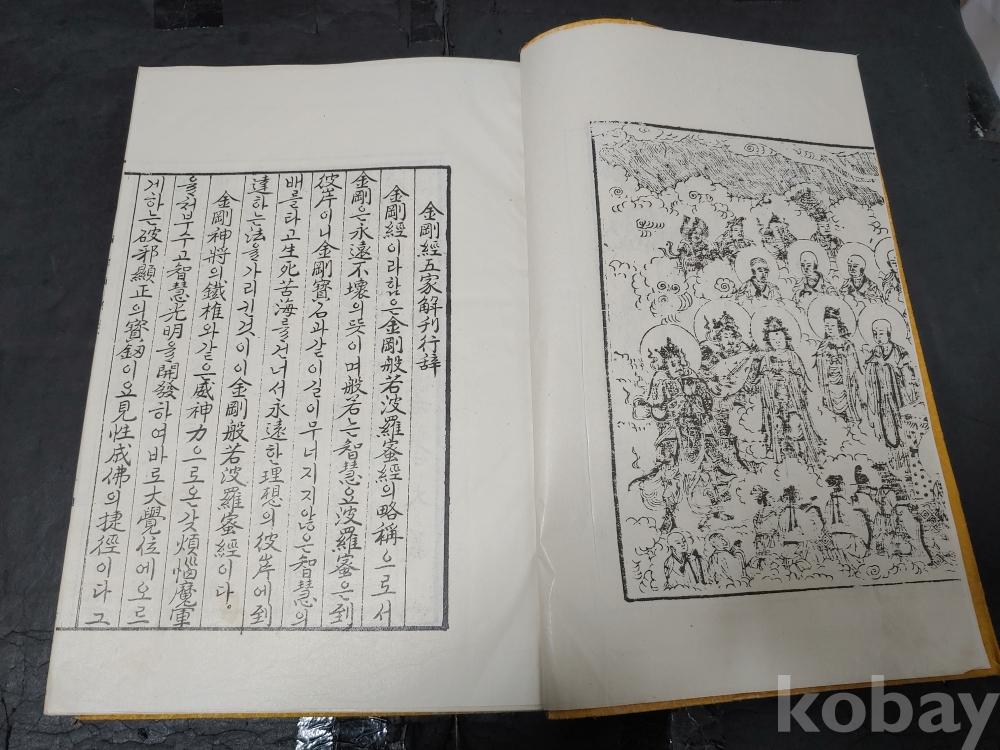 金剛經五家解刊行辞
金剛經이라함은金剛般若波羅蜜經의略稱으로서
金剛은永遠不壞의뜻이며般若는智慧요波羅蜜은到
彼岸이니金剛寶石과같이길이무너지지않은智慧의
배를타고生死苦海를건너서永遠한理想의彼岸에到
達하는法을가리킨것이이金剛般若波羅蜜經이다。
金剛神將의鐵椎와같은威神力으로온갖煩惱魔軍
을쳐부수고智慧光明을開發하여바로大覺位에오르
게하는破邪顯正의寶釰이요見性成佛의捷徑이다그
kobay